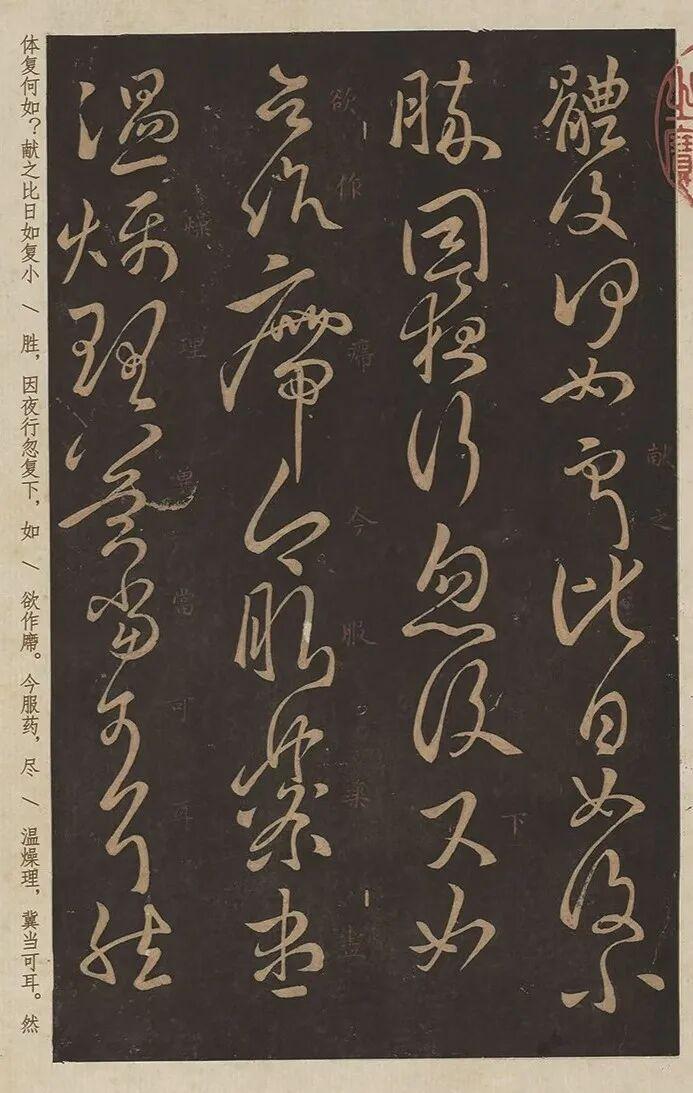 體復何如獻之比日如復小
献之
勝因夜行忽復下如
下
欲作廗今服藥盡
欲作 今服藥盡
溫燥理冀當可耳然
燥理冀當可耳
体复何如？献之比日如复小 \ 胜，因夜行忽复下，如 \ 欲作廗。今服药，尽 \ 温燥理，冀当可耳。然